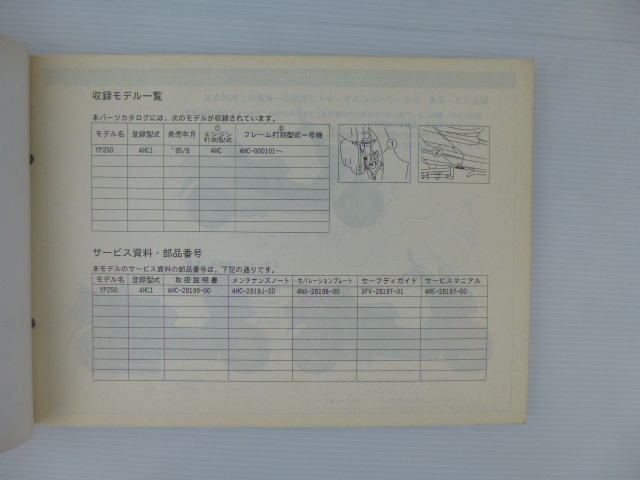 収録モデル一覧
本パーツカタログには、次のモデルが収録されています。
モデル名 登録型式 発売年月 ① エンジン打刻型式 ② フレーム打刻型式一号機
YP250 4HC1 '95/8 4HC 4HC-000101～
①
②
サービス資料・部品番号
本モデルのサービス資料の部品番号は、下記の通りです。
モデル名 登録型式 取扱説明書 メンテナンスノート セパレーションプレート セーフティガイド サービスマニアル
YP250 4HC1 4HC-28199-00 4HC-2819J-S0 4NX-2819B-00 3FV-28197-01 4HC-28197-00